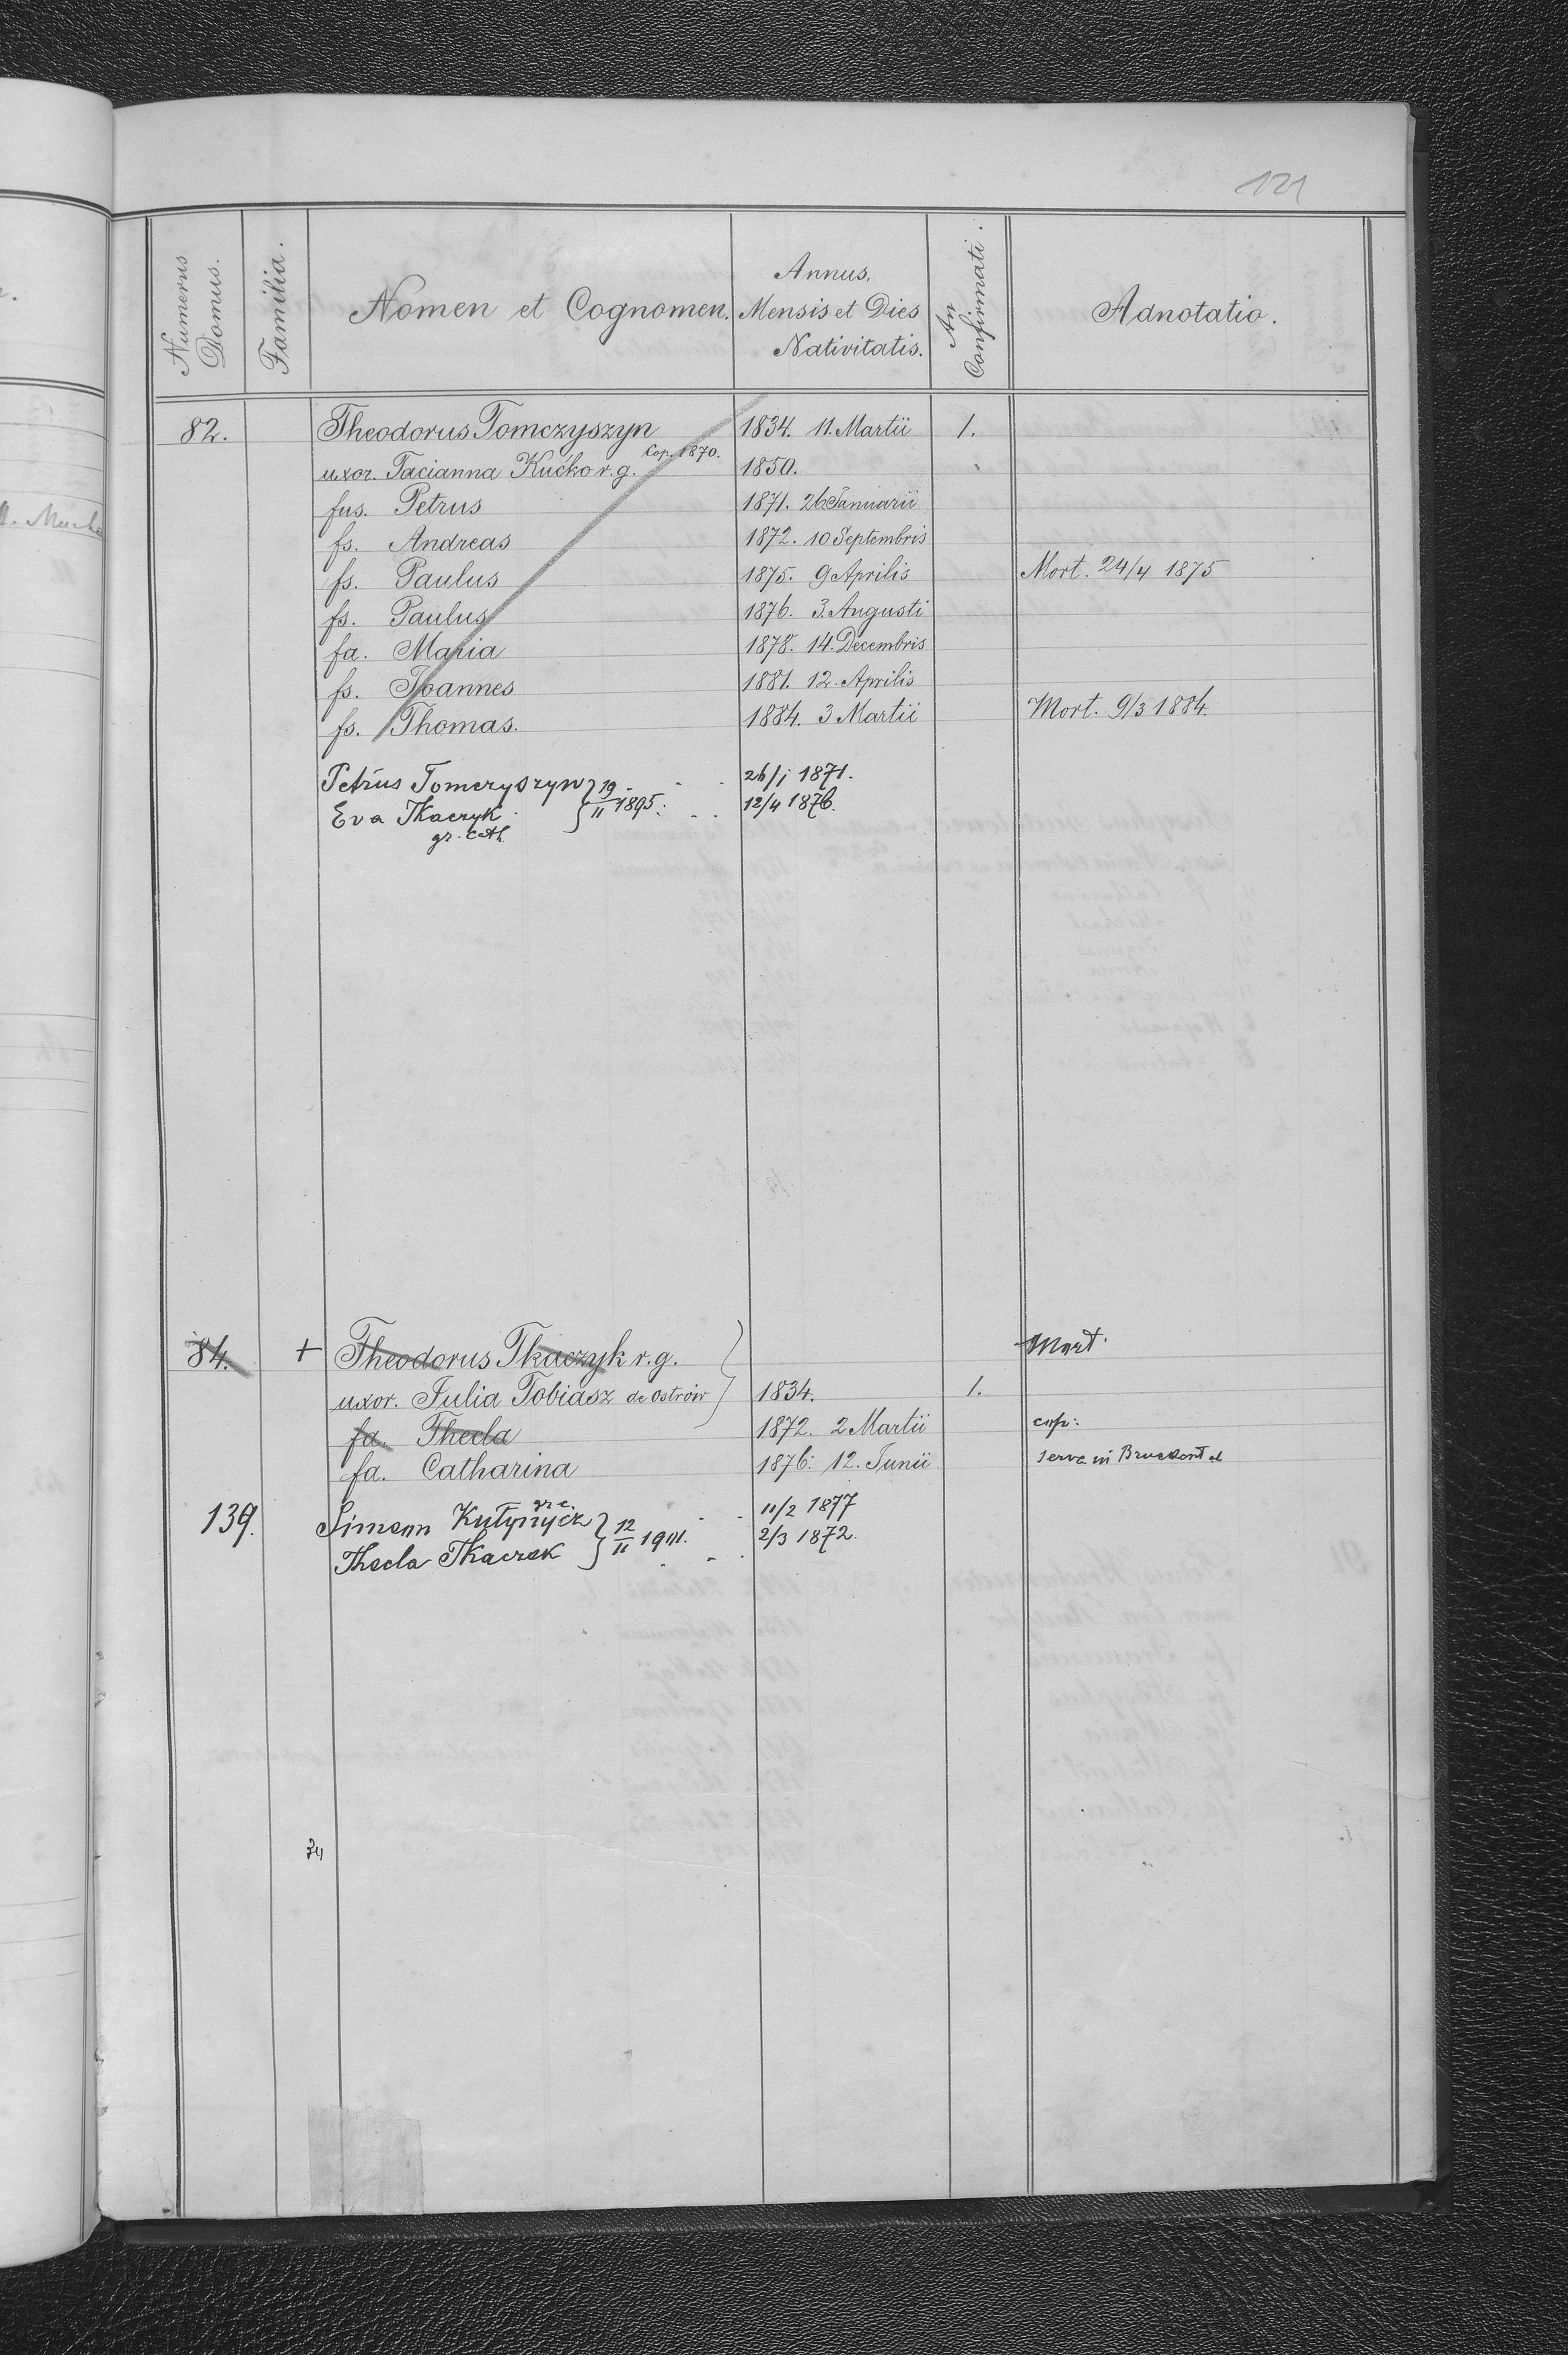 121
Numerus Domus.
Familia.
Nomen et Cognomen.
Annus, Mensis et Dies Nativitatis.
An Confirmati.
Adnotatio.
82. Theodorus Tomczyszyn 1834. 11. Martii 1.
uxor. Tacianna Kućko r.g. Cop. 1870. 1850.
fus. Petrus 1871. 26 Januarii
fs. Andreas 1872. 10 Septembris
fs. Paulus 1875. 9 Aprilis Mort. 24/4 1875
fs. Paulus 1876. 3. Augusti
fa. Maria 1878. 14. Decembris
fs. Joannes 1881. 12. Aprilis
fs. Thomas. 1884. 3 Martii Mort. 9/3 1884.
Petrus Tomczyszyn } 19/II 1895. 26/1 1871.
Eva Tkaczyk 12/4 1876.
gr. cath.
84. + Theodorus Tkaczyk r.g. Mort.
uxor. Julia Tobiasz de Ostrów 1834. 1.
fa. Thecla 1872. 2 Martii cop:
fa. Catharina 1876. 12. Junii serva in
139. Simeon gr c 11/2 1877
Thecla Tkaczek } 12/II 2/3 1872.